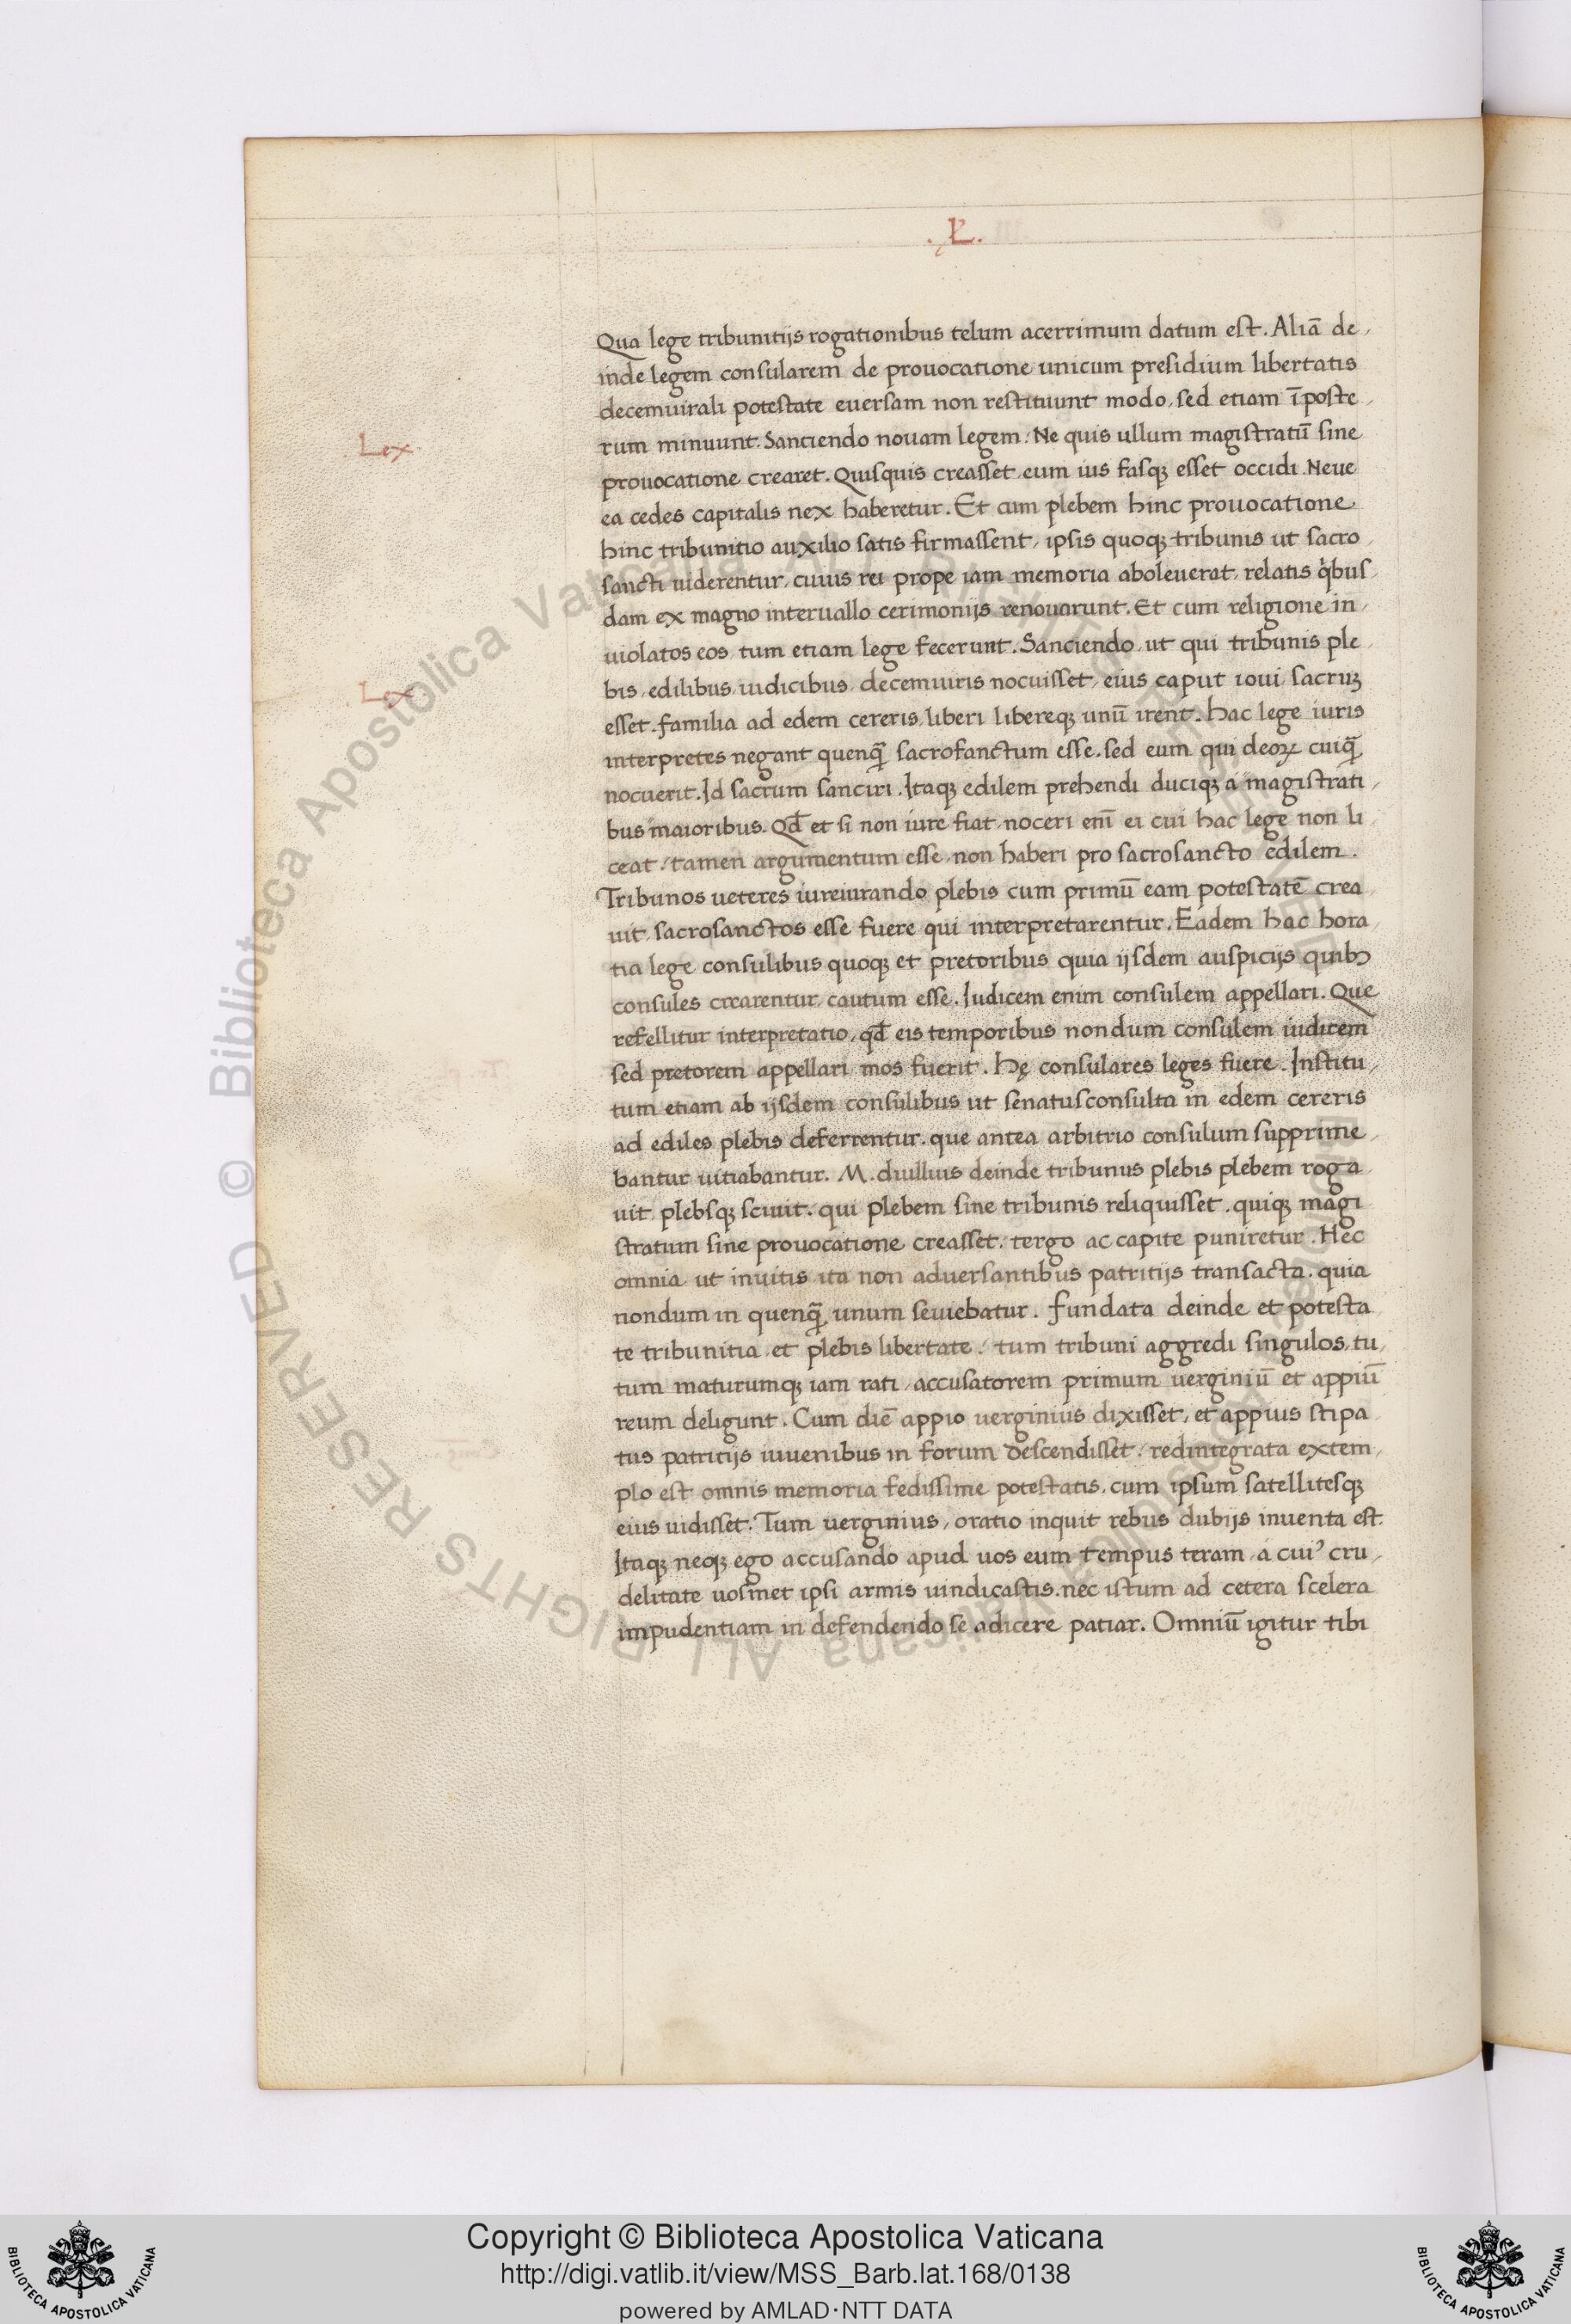 .L.
Qua lege tribunitijs rogationibus telum acerrimum datum est. Aliā de,
inde legem consularem de prouocatione unicum presidium libertatis
decemuirali potestate euersam non restituunt modo, sed etiam ī poste,
Lex
rum minuunt. Sanciendo nouam legem. Ne quis ullum magistratū sine
prouocatione crearet. Quisquis creasset, eum ius fasqꝫ esset occidi. Neue
ea cedes capitalis nex haberetur. Et cum plebem hinc prouocatione
hinc tribunitio auxilio satis firmassent, ipsis quoqꝫ tribunis ut sacro,
sancti uiderentur, cuius rei prope iam memoria aboleuerat, relatis q̇bus
dam ex magno interuallo cerimonijs renouarunt. Et cum religione in,
uiolatos eos, tum etiam lege fecerunt. Sanciendo, ut qui tribunis ple
Lex
bis, edilibus, iudicibus, decemuiris nocuisset, eius caput ioui, sacruꝫ
esset. familia ad edem cereris, liberi libereqꝫ unū irent. Hac lege iuris
interpretes negant quenq̄ sacrosanctum esse. sed eum qui deoꝝ cuiq̄
nocuerit. Id sacrum sanciri. Itaqꝫ edilem prehendi duciqꝫ a magistrati,
bus maioribus. Qđ et si non iure fiat, noceri enī ei cui hac lege non li,
ceat, tamen argumentum esse, non haberi pro sacrosancto edilem.
Tribunos ueteres iureiurando plebis cum primū eam potestatē crea,
uit, sacrosanctos esse fuere qui interpretarentur. Eadem hac hora,
tia lege consulibus quoqꝫ et pretoribus quia ijsdem auspicijs quibꝫ
consules crearentur, cautum esse. Iudicem enim consulem appellari. Que
refellitur interpretatio, qđ eis temporibus nondum consulem iudicem
sed pretorem appellari mos fuerit. Hę consulares leges fuere. Institu,
tum etiam ab ijsdem consulibus ut senatusconsulta in edem cereris
ad ediles plebis deferrentur. que antea arbitrio consulum supprime,
bantur uitiabantur. M. duillius deinde tribunus plebis plebem roga,
uit plebsqꝫ sciuit, qui plebem sine tribunis reliquisset, quiqꝫ magi
stratum sine prouocatione creasset, tergo ac capite puniretur. Hec
omnia ut inuitis ita non aduersantibus patritijs transacta. quia
nondum in quenq̄ unum seuiebatur. Fundata deinde et potesta
te tribunitia et plebis libertate, tum tribuni aggredi singulos, tu,
tum maturumqꝫ iam rati, accusatorem primum uerginiū et appiū
reum deligunt. Cum diē appio uerginius dixisset, et appius stipa
tus patritijs iuuenibus in forum descendisset, redintegrata extem,
plo est omnis memoria fedissime potestatis, cum ipsum satellitesqꝫ
eius uidisset. Tum uerginius, oratio inquit rebus dubijs inuenta est.
Itaqꝫ neqꝫ ego accusando apud uos eum tempus teram, a cui᾽ cru,
delitate uosmet ipsi armis uindicastis. nec istum ad cetera scelera
impudentiam in defendendo se adicere patiar. Omniū igitur tibi
© Biblioteca Apostolica Vaticana ALL RIGHTS RESERVED
Copyright © Biblioteca Apostolica Vaticana
http://digi.vatlib.it/view/MSS_Barb.lat.168/0138
powered by AMLAD·NTT DATA
BIBLIOTECA APOSTOLICA VATICANA
BIBLIOTECA APOSTOLICA VATICANA